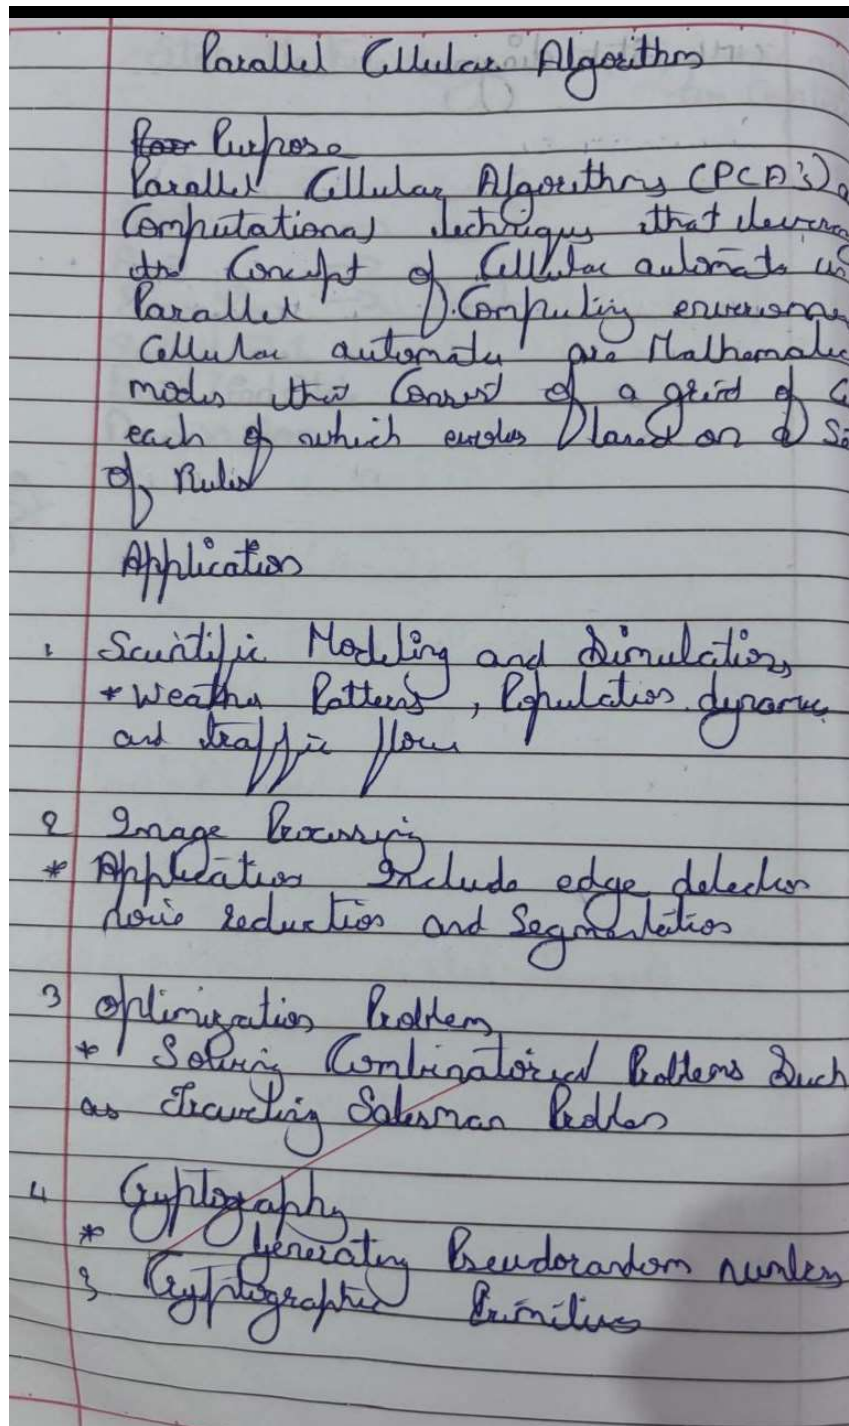 Parallel Cellular Algorithm
Purpose
Parallel Cellular Algorithms (PCA's) a
Computational techniques that levera
the Concept of Cellular automata in
Parallel Computing environme
Cellular automata are Mathematic
modes that Consist of a grid of C
each of which evolves based on a Se
of Rules
Application
1 Scientific Modeling and Simulation
* Weather Patterns, Population dynamic
and traffic flow
2 Image Processing
* Application Include edge detection
noise reduction and Segmentation
3 Optimization Problem
* Solving Combinatorial Problems Such
as Traveling Salesman Problem
4 Cryptography
* Generating Pseudorandom numbers
& Cryptographic Primitives